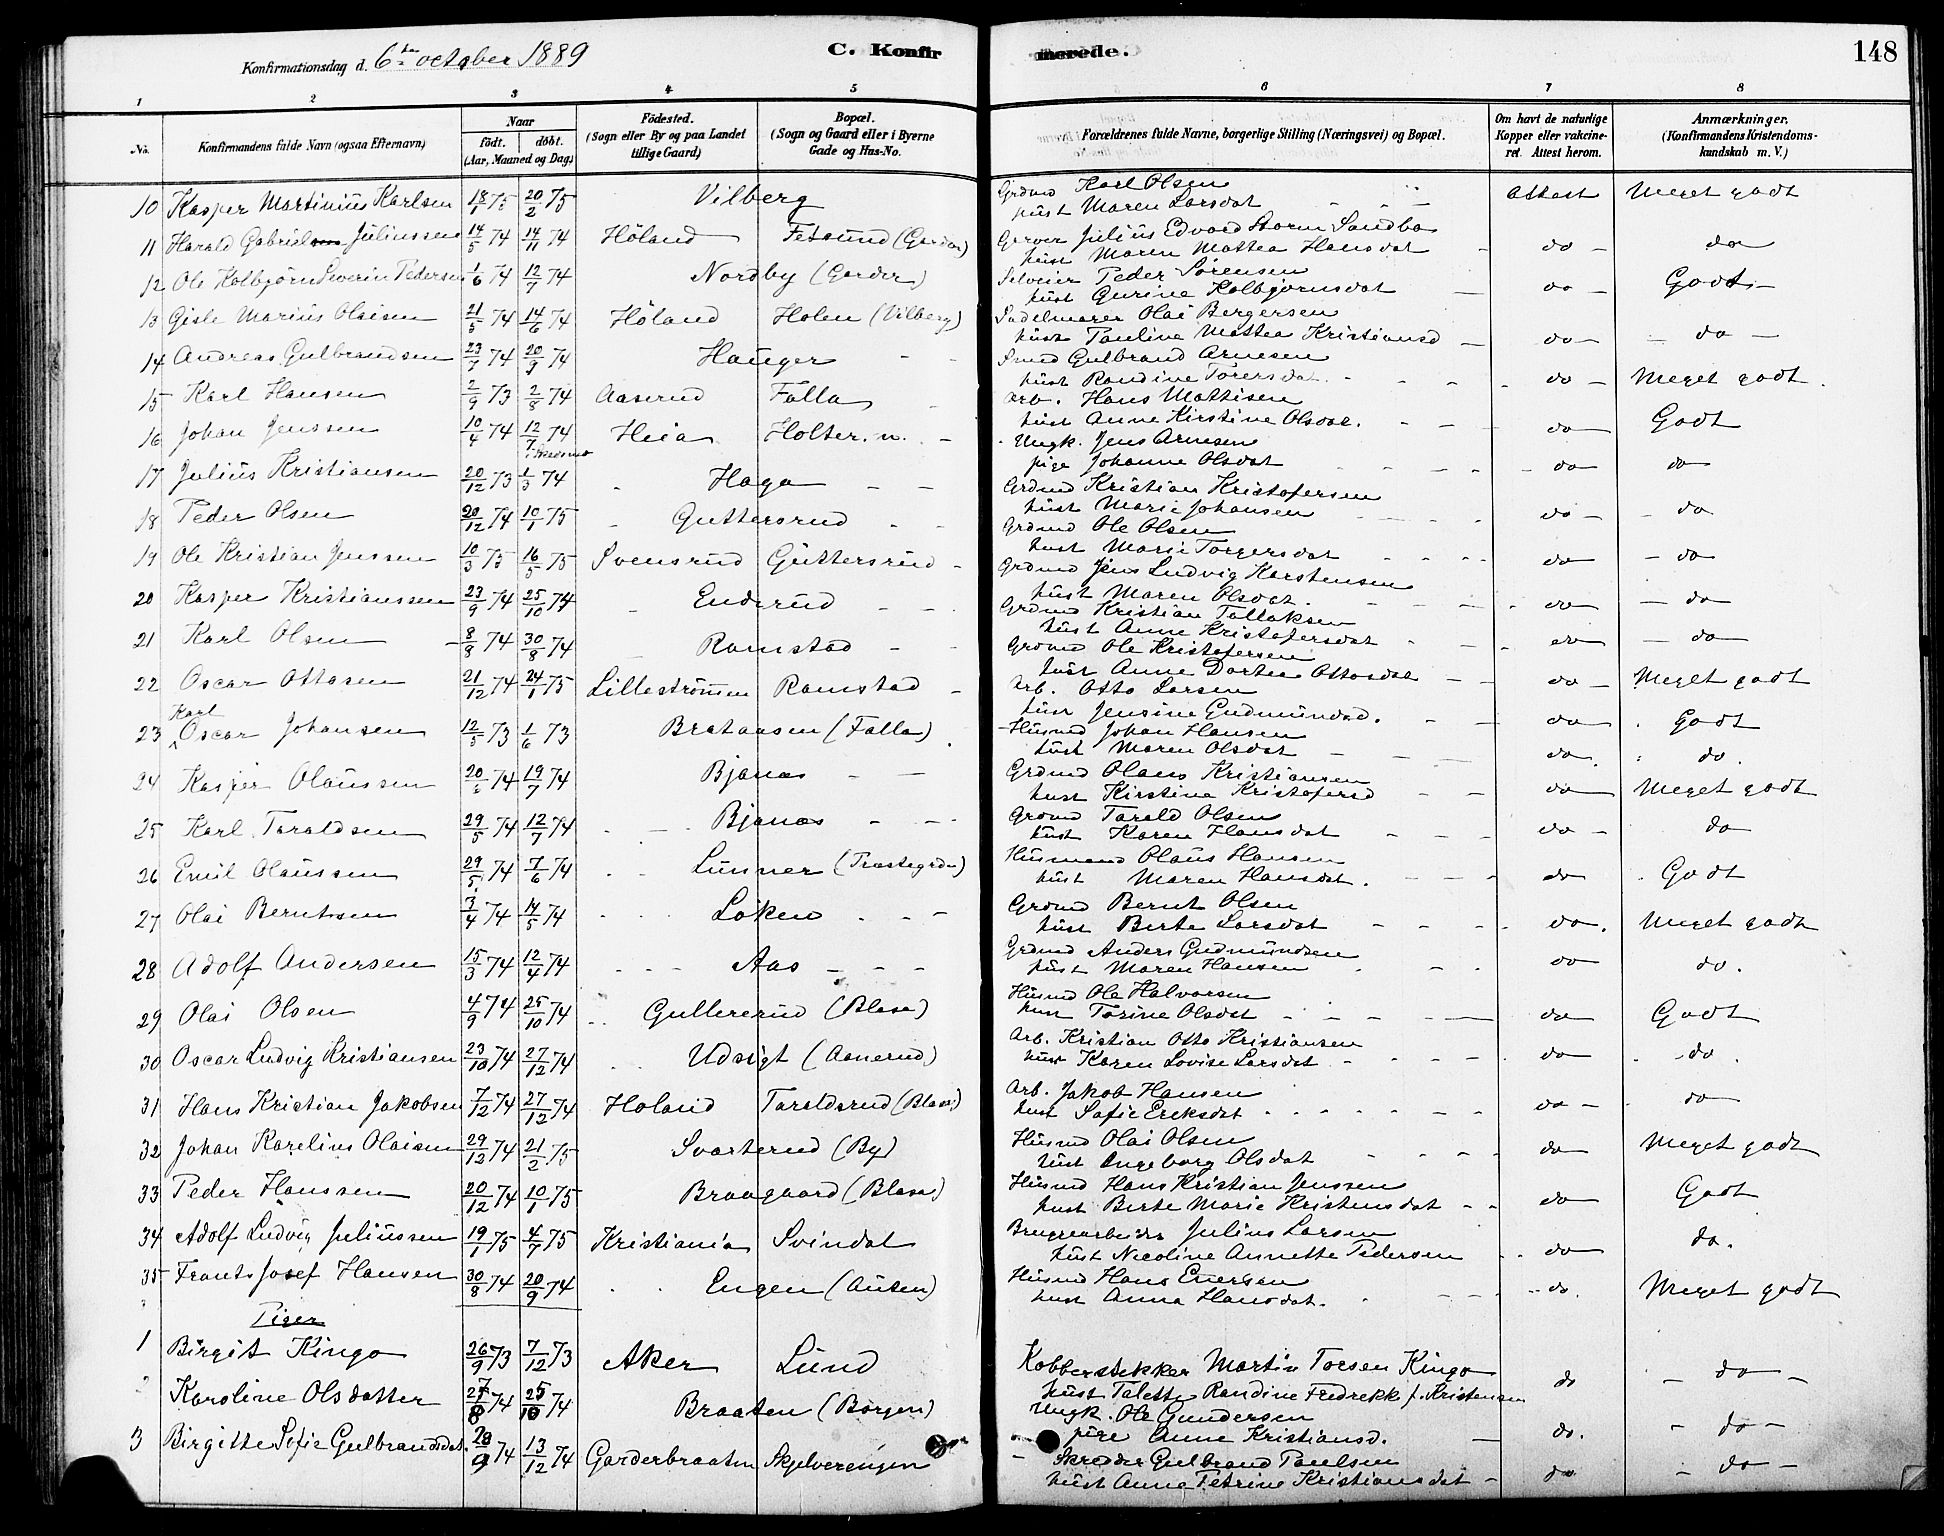 Konfirmationsdag d. 6te october 1889
C. Konfirmerede.
148
1 2 3 4 5 6 7 8
No. Konfirmandens fulde Navn (ogsaa Efternavn) Naar født. døbt. (Aar, Maaned og Dag) Fødested. (Sogn eller By og paa Landet tillige Gaard) Bopæl. (Sogn og Gaard eller i Byerne Gade og Hus-No. Forældrenes fulde Navne, borgerlige Stilling (Næringsvei) og Bopæl. Om havt de naturlige Kopper eller vakcineret. Attest herom. Anmærkninger. (Konfirmandens Kristendomskundskab m. V.)
10 Kasper Martinius Karlsen 18/1 75 20/2 75 Vilberg Grdmd Karl Olsen Attest Meget godt
hust Maren Larsdat
11 Harald Gabriel Juliussen 14/5 74 14/11 74 Høland Fetsund Garver Julius Edvard Storm Sandbo do do
hust Maren Mattea Hansdat
12 Ole Kolbjørn Severin Pedersen 1/6 74 12/7 74 Nordby (Garder) Selveier Peder Sørensen do Godt
hust Gurine Kolbjørnsdat
13 Gisle Marius Olaisen 21/5 74 14/6 74 Høland Holen (Vilberg) Sadelmager Olai Bergersen do do
hust Pauline Mattea Kristiansd
14 Andreas Gulbrandsen 23/7 74 20/9 74 Hauger Smed Gulbrand Arnesen do Meget godt
hust Randine Torersdat
15 Karl Hansen 2/9 73 2/8 74 Aaserud Falla Arb. Hans Mattisen do Godt
hust Anne Kirstine Olsdat.
16 Johan Jenssen 10/4 74 12/7 74 Heia Holter n. Ungk. Jens Arnesen do do
pige Johanne Olsdat
17 Julius Kristiansen 20/12 73 1/3 74 Haga Grdmd Kristian Kristofersen do do
hust Marie Johansen
18 Peder Olsen 20/12 74 10/1 75 Guttersrud Grdmd Ole Olsen do do
hust Marie Torgersdat
19 Ole Kristian Jenssen 10/3 75 16/5 75 Svensrud Guttersrud Grdmd Jens Ludvig Karstensen do do
hust Maren Olsdat.
20 Kasper Kristianssen 23/9 74 25/10 74 Enderud Grdmd Kristian Tollaksen do do
hust Anne Kristofersdat
21 Karl Olsen 8/8 74 30/8 74 Ramstad Grdmd Ole Kristofersen do Meget godt
hust Anne Dortea Ottosdat
22 Oscar Ottosen 21/12 74 24/1 75 Lillestrømmen Ramstad Arb. Otto Larsen do Godt
hust Jensine Gudmundsd.
23 Karl Oscar Johansen 12/5 73 1/6 73 Brataasen (Falla) Husmd Johan Hansen do do
hust Maren Olsdat
24 Kasper Olaussen 20/6 74 19/7 74 Bjanæs Grdmd Olaus Kristiansen do Meget godt
hust Kirstine Kristofersd
25 Karl Taraldsen 29/5 74 12/7 74 Bjanæs Grdmd Tarald Olsen do do
hust Karen Hansdat
26 Emil Olaussen 29/5 74 7/6 74 Lunner (Præstegrdn) Husmand Olaus Hansen do Godt
hust Maren Hansdat.
27 Olai Berntsen 3/4 74 14/5 74 Løken Grdmd Bernt Olsen do Meget godt
hust Berte Larsdat
28 Adolf Andersen 15/3 74 12/4 74 Aas Grdmd Anders Gudmundsen do do.
hust Maren Hansen
29 Olai Olsen 4/9 74 25/10 74 Gullererud (Blase) Husmd Ole Halvorsen do Godt
hust Torine Olsdat
30 Oscar Ludvig Kristiansen 23/10 74 27/12 74 Udsigt (Aanerud) Arb. Kristian Otto Kristiansen do do.
hust Karen Lovise Larsdat
31 Hans Kristian Jakobsen 7/12 74 27/12 74 Høland Taraldsrud Arb. Jakob Hansen do do
hust Sofie Eriksdat
32 Johan Karelius Olaisen 29/12 74 21/2 75 Svarterud (By) Husmd Olai Olsen do Meget godt
hust Ingeborg Olsdat
33 Peder Hanssen 20/12 74 10/1 75 Braagaard Husmd Hans Kristian Jenssen do Godt
hust Berte Marie Kristensdat
34 Adolf Ludvig Juliussen 19/1 75 4/7 75 Kristiania Svindal Brugsarbeider Julius Larsen do do.
hust Nicoline Annette Pedersen
35 Frants Josef Hansen 30/8 74 20/9 74 Engen (Ausen) Husmd Hans Enersen do. Meget godt
hust Anna Hansdat.
Piger
1 Birgit Kingo 26/9 73 7/12 73 Aker Lund Kobberstikker Martin Toesen Kingo do do
hust Talette Randine Fredrekke f. Kristensen
2 Karoline Olsdatter 27/8 74 25/10 74 Braaten (Børgen) Ungk. Ole Gundersen do. do
pige Anne Kristiansd.
3 Birgitte Sofie Gulbrandsdat. 20/9 74 13/12 74 Garderbraaten Skjelverengen Skredder Gulbrand Paulsen do do
hust Anna Petrine Kristiansdat